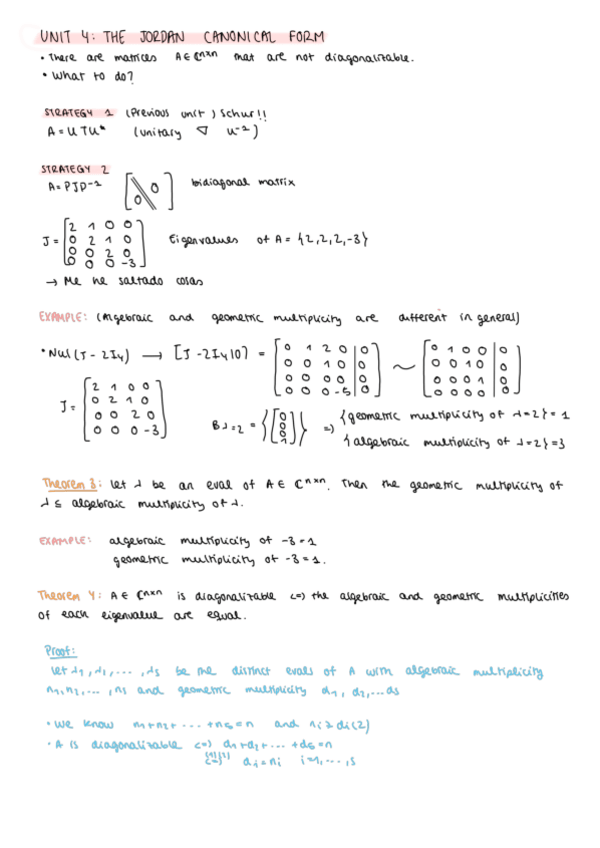 UNIT 4: THE JORDAN CANONICAL FORM
• There are matrices A ∈ ℂⁿˣⁿ that are not diagonalizable.
• What to do?
STRATEGY 1 (Previous unit) Schur!!
A = U T U* (unitary ∇ U⁻¹)
STRATEGY 2
A = PJP⁻¹ [0 \\ 0] bidiagonal matrix
J = [2 1 0 0
0 2 1 0
0 0 2 0
0 0 0 -3] Eigenvalues of A = {2,2,2,-3}
→ Me he saltado cosas
EXAMPLE: (Algebraic and geometric multiplicity are different in general)
• Nul(J - 2I₄) → [J - 2I₄|0] = [0 1 2 0 | 0
0 0 1 0 | 0
0 0 0 0 | 0
0 0 0 -5 | 0] ~ [0 1 0 0 | 0
0 0 1 0 | 0
0 0 0 1 | 0
0 0 0 0 | 0]
J = [2 1 0 0
0 2 1 0
0 0 2 0
0 0 0 -3]
Bλ=2 = {[0 0 0 1]} => {geometric multiplicity of λ=2} = 1
{algebraic multiplicity of λ=2} = 3
Theorem 3: Let λ be an eval of A ∈ ℂⁿˣⁿ. Then the geometric multiplicity of
λ ≤ algebraic multiplicity of λ.
EXAMPLE: algebraic multiplicity of -3 = 1
geometric multiplicity of -3 = 1.
Theorem 4: A ∈ ℂⁿˣⁿ is diagonalizable <=> the algebraic and geometric multiplicities
of each eigenvalue are equal.
Proof:
Let λ₁, λ₂, ..., λs be the distinct evals of A with algebraic multiplicity
n₁, n₂, ..., ns and geometric multiplicity d₁, d₂, ... ds
• We know n₁+n₂+ ... +ns = n and ni ≥ di (2)
• A is diagonalizable <=> d₁+d₂+ ... +ds = n
(1)(2) <=> di = ni i=1, ..., s